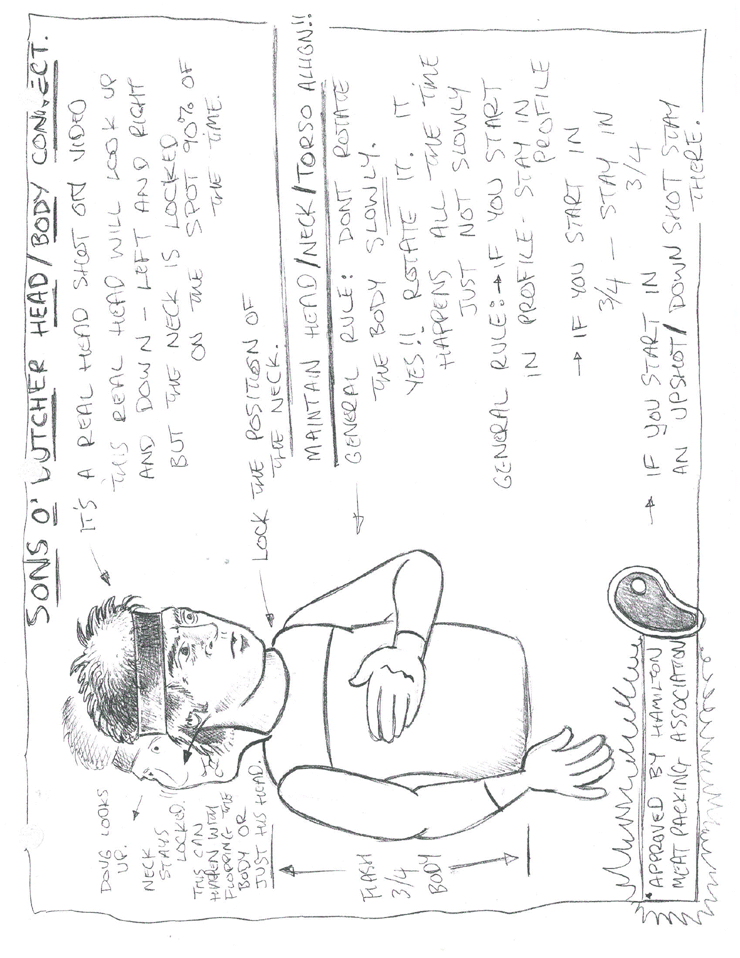 SONS O' BUTCHER HEAD/BODY CONNECT.
IT'S A REAL HEAD SHOT ON VIDEO
THIS REAL HEAD WILL LOOK UP
AND DOWN - LEFT AND RIGHT
BUT THE NECK IS LOCKED
ON THE SPOT 90% OF
THE TIME.
LOCK THE POSITION OF
THE NECK.
MAINTAIN HEAD/NECK/TORSO ALLIGN!!
GENERAL RULE: DONT ROTATE
THE BODY SLOWLY.
YES!! ROTATE IT. IT
HAPPENS ALL THE TIME
JUST NOT SLOWLY
GENERAL RULE: → IF YOU START
IN PROFILE - STAY IN
PROFILE
→ IF YOU START IN
3/4 — STAY IN
3/4
→ IF YOU START IN
AN UPSHOT/DOWN SHOT STAY
THERE.
DOUG LOOKS
UP.
NECK
STAYS
LOCKED!!
THIS CAN
HAPPEN WITH
FLOPPING THE
BODY OR
JUST HIS HEAD.
FLASH
3/4
BODY
APPROVED BY HAMILTON
MEAT PACKING ASSOCIATION